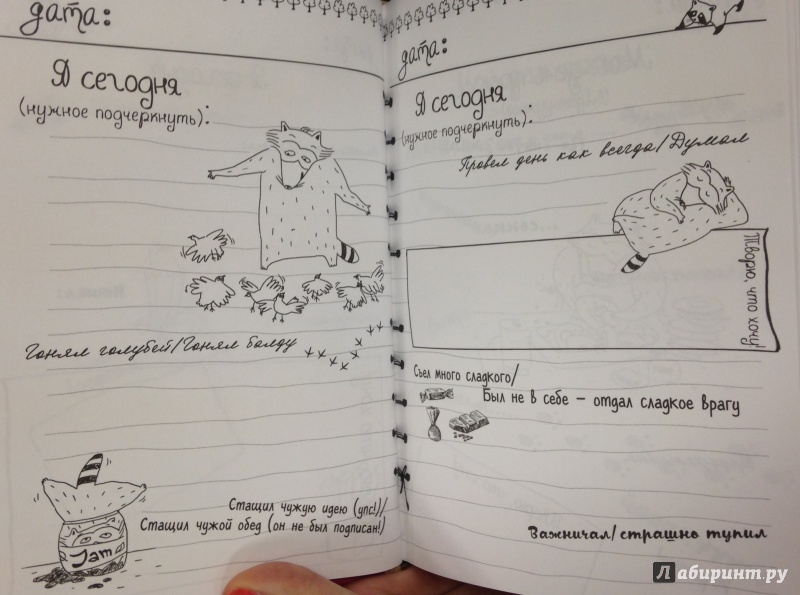 дата:
Я сегодня
(нужное подчеркнуть):
Гонял голубей/Гонял балду
Стащил чужую идею (упс!)/
Стащил чужой обед (он не был подписан!)
Jam
дата:
Я сегодня
(нужное подчеркнуть):
Провел день как всегда/Думал
Творю, что хочу!
Съел много сладкого/
Был не в себе – отдал сладкое врагу
Важничал/страшно тупил
Лабиринт.ру